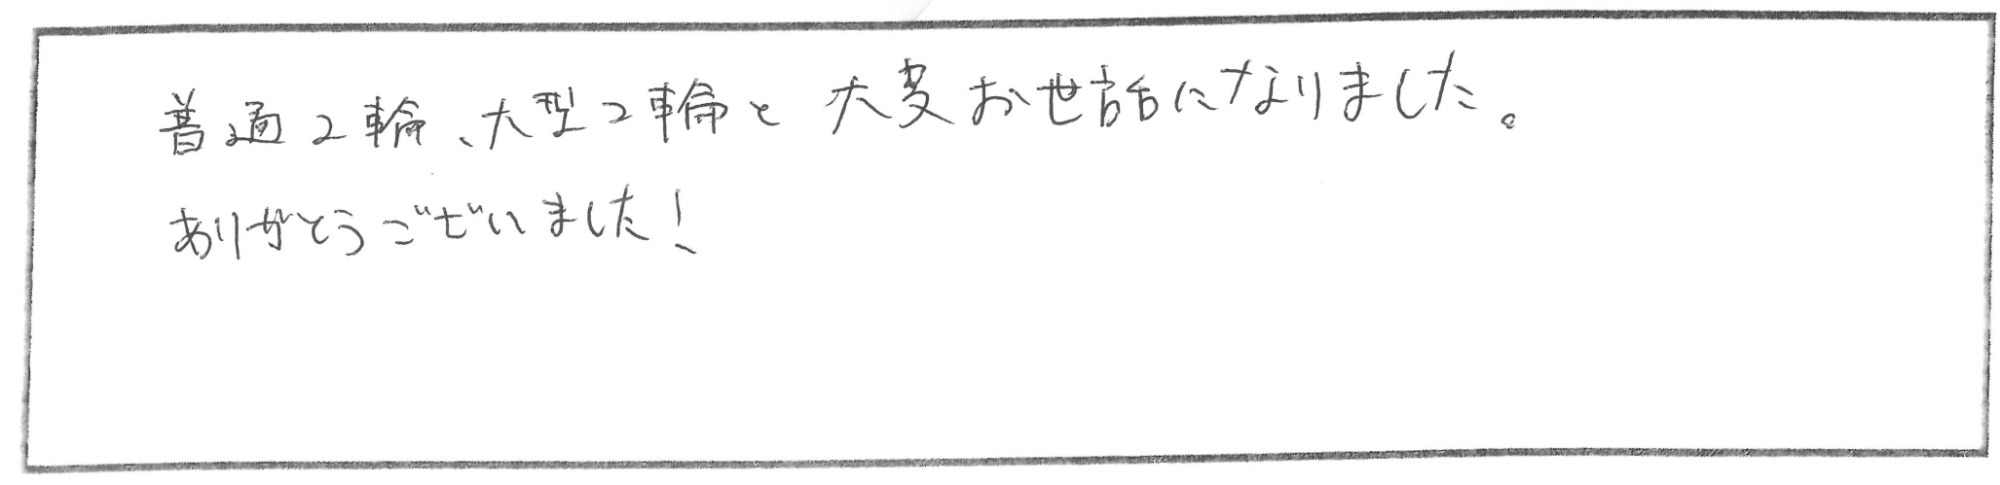 普通2輪、大型2輪と大変お世話になりました。
ありがとうございました!